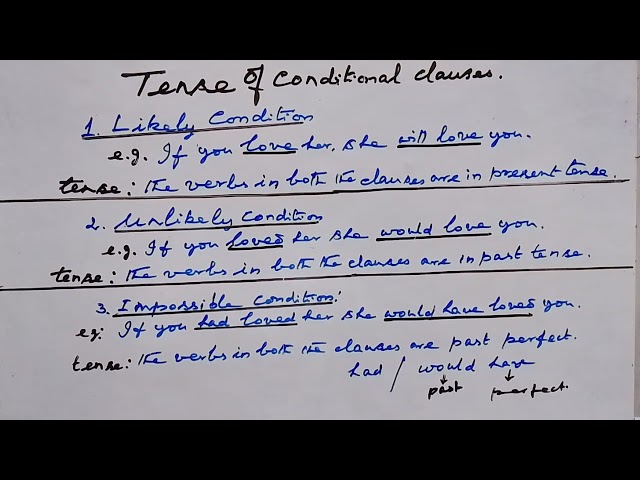 Tense of conditional clauses.
1. Likely Condition
e.g. If you love her, she will love you.
tense: the verbs in both the clauses are in present tense.
2. Unlikely Condition
e.g. If you loved her she would love you.
tense: the verbs in both the clauses are in past tense.
3. Impossible Condition:
eg: If you had loved her she would have loved you.
tense: the verbs in both the clauses are past perfect.
had / would have
past perfect.